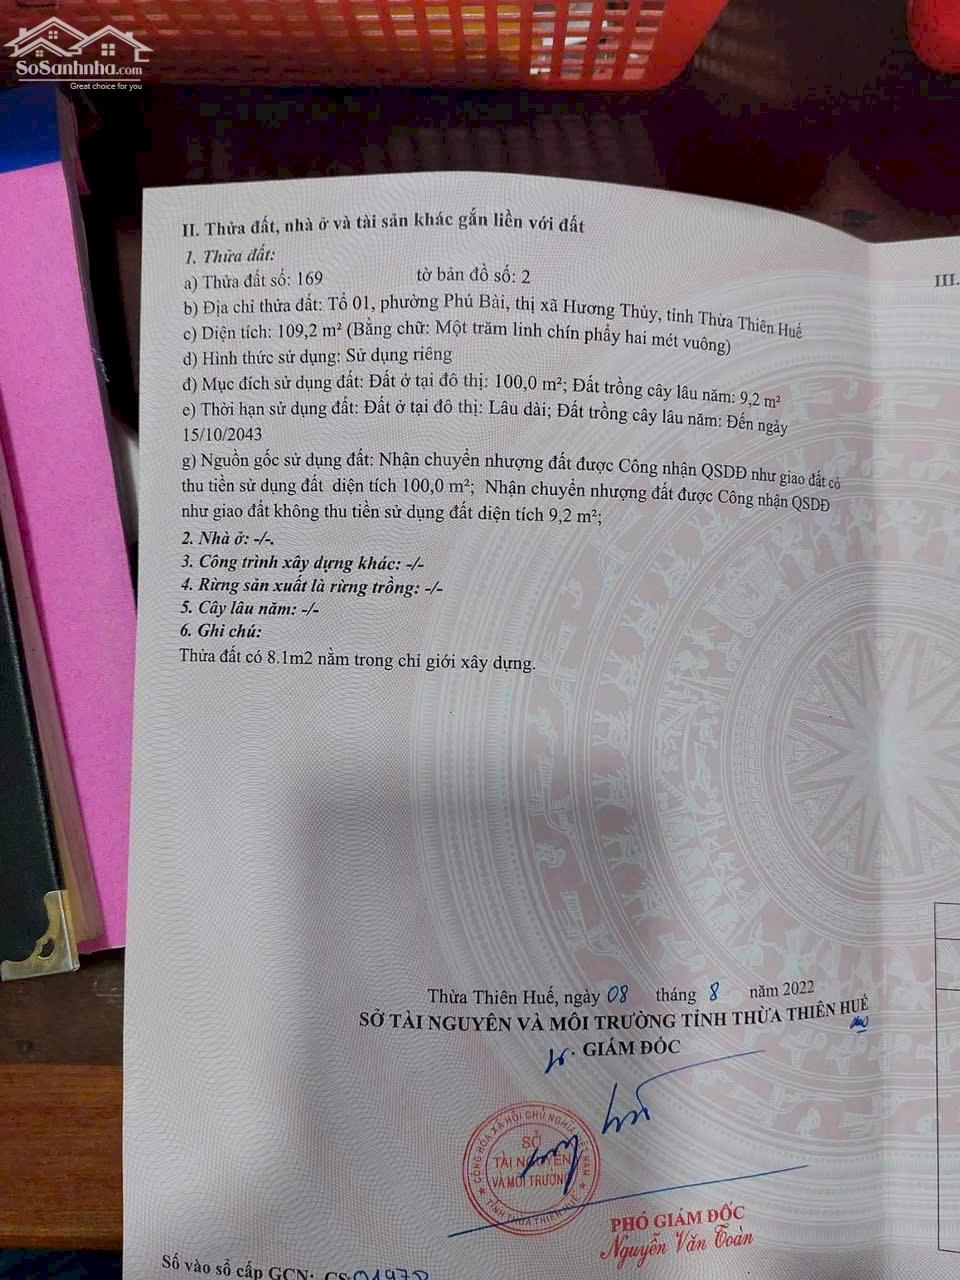 SoSanhnha.com
Great choice for you
II. Thửa đất, nhà ở và tài sản khác gắn liền với đất
1. Thửa đất:
a) Thửa đất số: 169 tờ bản đồ số: 2
b) Địa chỉ thửa đất: Tổ 01, phường Phú Bài, thị xã Hương Thủy, tỉnh Thừa Thiên Huế
c) Diện tích: 109,2 m² (Bằng chữ: Một trăm linh chín phẩy hai mét vuông)
d) Hình thức sử dụng: Sử dụng riêng
đ) Mục đích sử dụng đất: Đất ở tại đô thị: 100,0 m²; Đất trồng cây lâu năm: 9,2 m²
e) Thời hạn sử dụng đất: Đất ở tại đô thị: Lâu dài; Đất trồng cây lâu năm: Đến ngày
15/10/2043
g) Nguồn gốc sử dụng đất: Nhận chuyển nhượng đất được Công nhận QSDĐ như giao đất có
thu tiền sử dụng đất diện tích 100,0 m²; Nhận chuyển nhượng đất được Công nhận QSDĐ
như giao đất không thu tiền sử dụng đất diện tích 9,2 m²;
2. Nhà ở: -/-.
3. Công trình xây dựng khác: -/-
4. Rừng sản xuất là rừng trồng: -/-
5. Cây lâu năm: -/-
6. Ghi chú:
Thửa đất có 8.1m2 nằm trong chỉ giới xây dựng.
III.
Thừa Thiên Huế, ngày 08 tháng 8 năm 2022
SỞ TÀI NGUYÊN VÀ MÔI TRƯỜNG TỈNH THỪA THIÊN HUẾ
GIÁM ĐỐC
CỘNG HÒA XÃ HỘI CHỦ NGHĨA VIỆT NAM
SỞ
TÀI NGUYÊN
VÀ MÔI TRƯỜNG
TỈNH THỪA THIÊN HUẾ
PHÓ GIÁM ĐỐC
Nguyễn Văn Toàn
Số vào sổ cấp GCN: CS